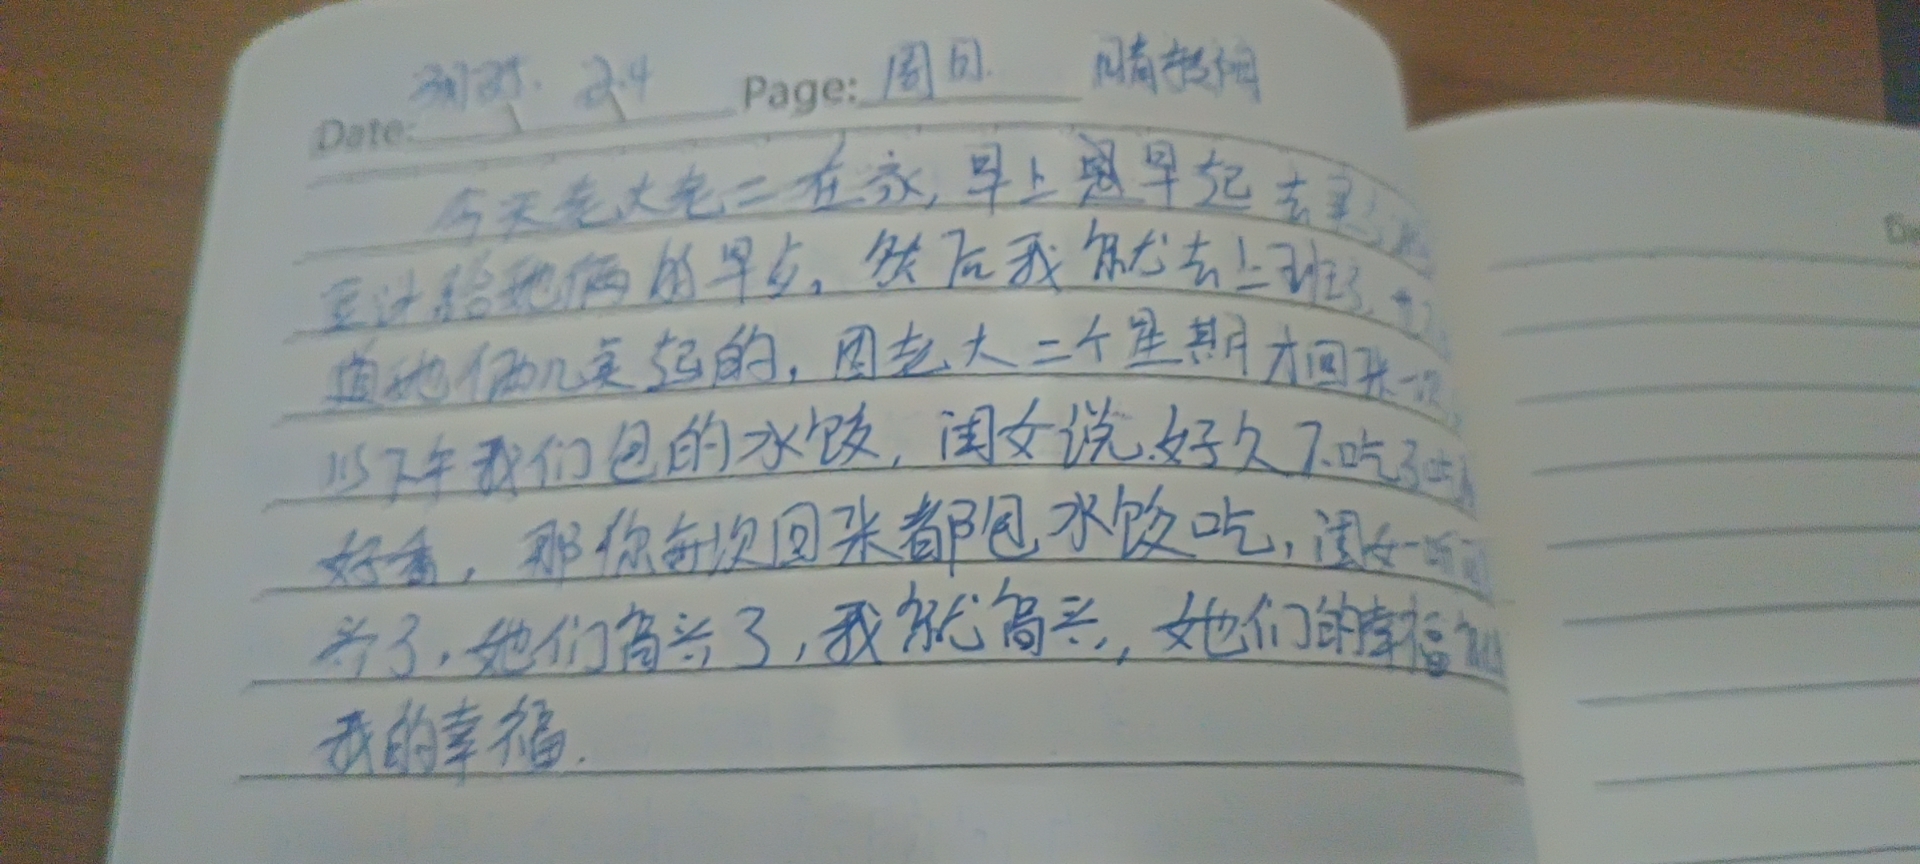 Date: 2.4 Page: 周日. 晴转阴
今天老大老二在家,早上早起去
豆汁给她俩的早点,然后我就去上班了,
道她俩几点起的,因老大二个星期才回来一次
以下午我们包的水饺,闺女说好久不吃了
好香,那你每次回来都包水饺吃,闺女一听
兴了,她们高兴了,我就高兴,她们的幸福就
我的幸福.